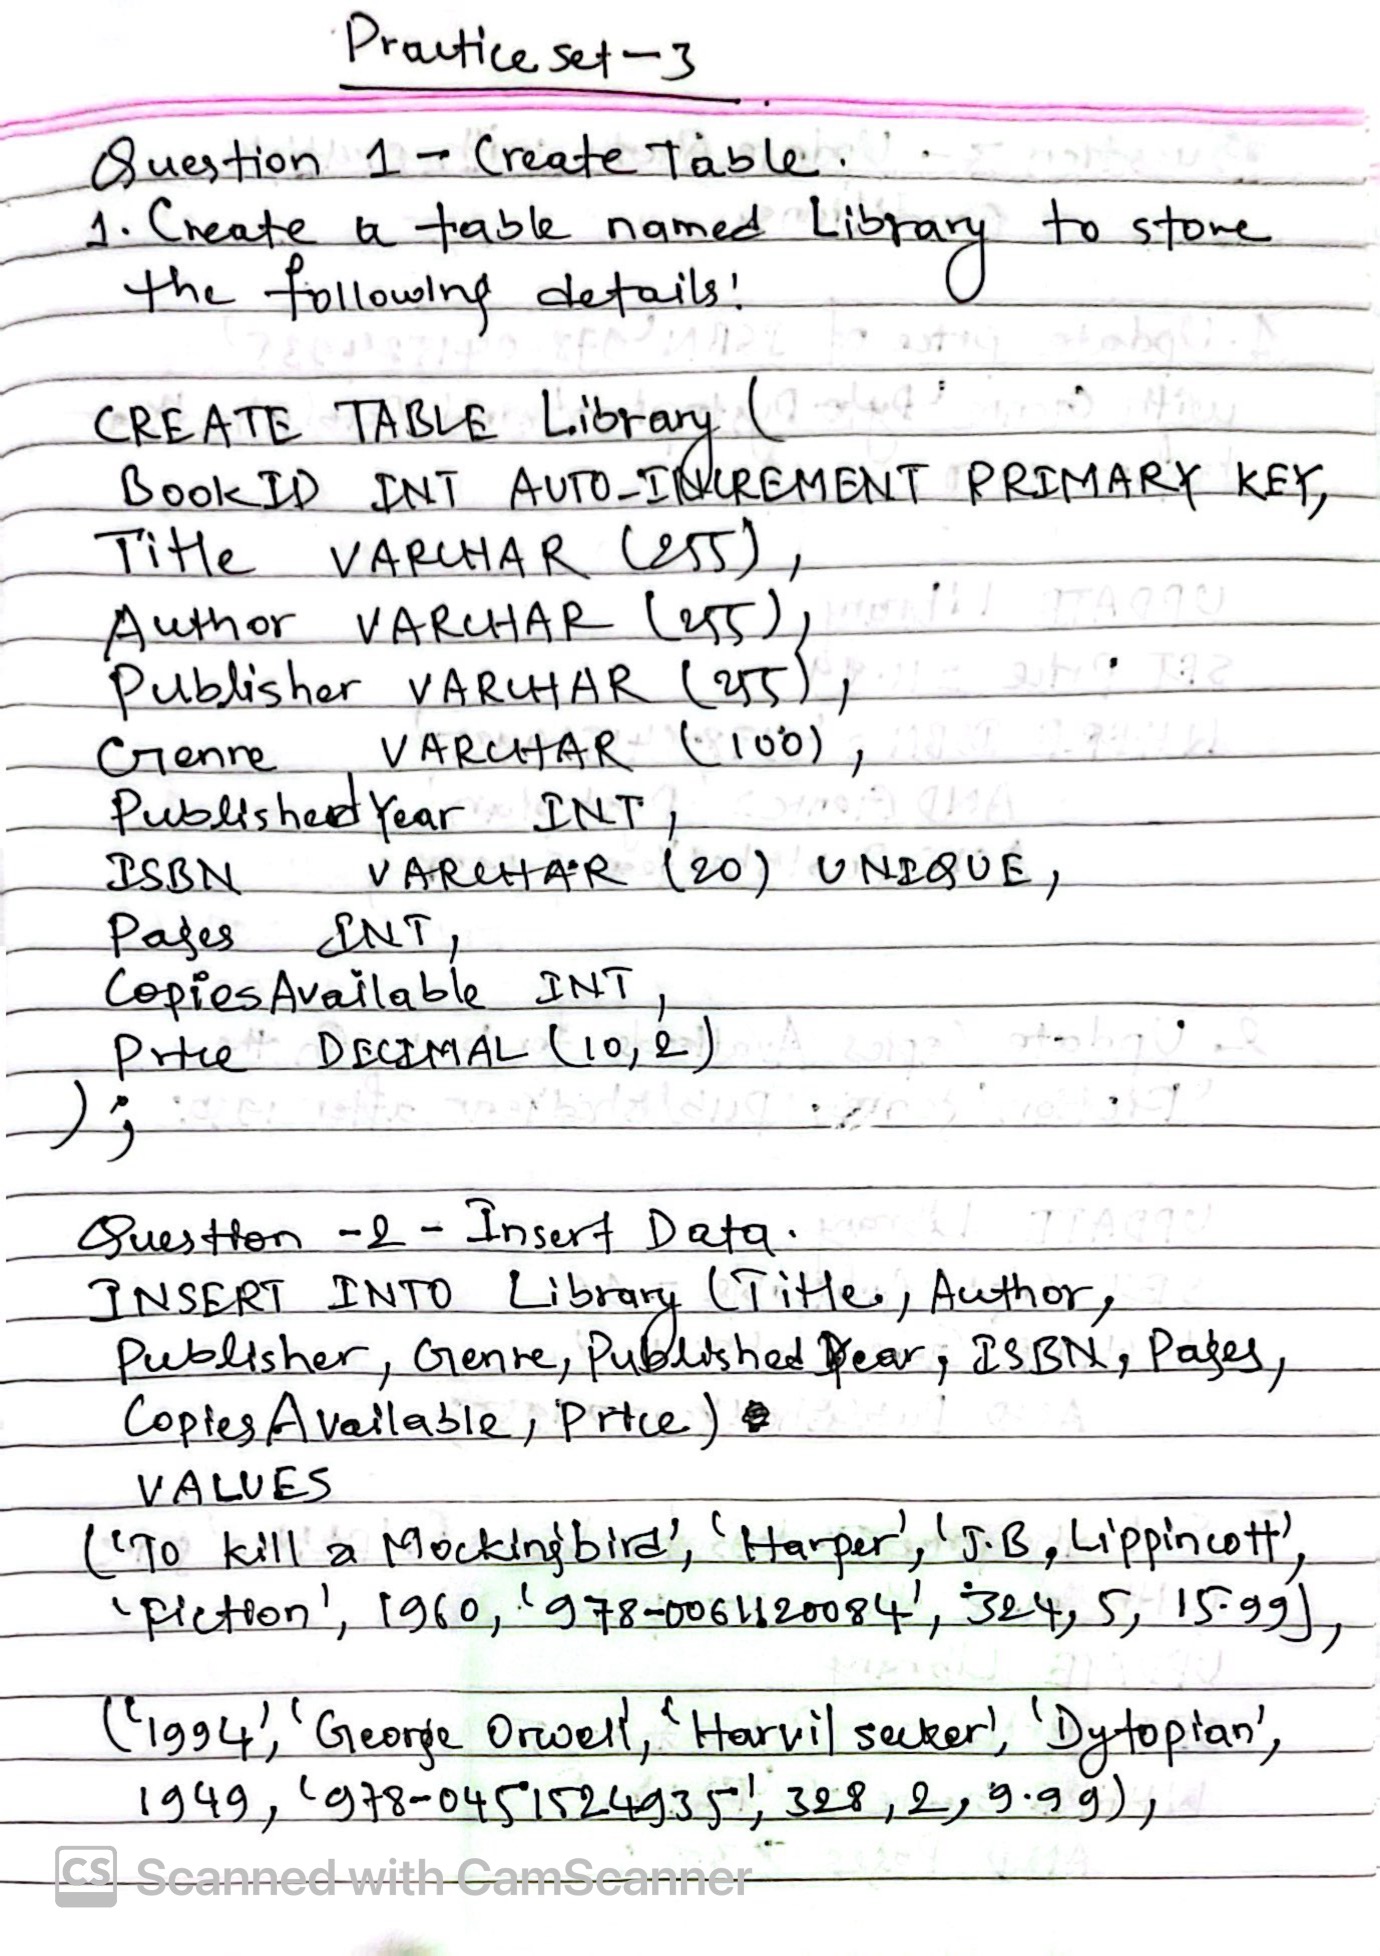 Practice set-3
Question 1 - Create Table.
1. Create a table named Library to store
the following details:
CREATE TABLE Library (
BookID INT AUTO_INCREMENT PRIMARY KEY,
Title VARCHAR (255),
Author VARCHAR (255),
Publisher VARCHAR (255),
Genre VARCHAR (100),
PublishedYear INT,
ISBN VARCHAR (20) UNIQUE,
Pages INT,
CopiesAvailable INT,
Price DECIMAL (10,2)
);
Question -2 - Insert Data.
INSERT INTO Library (Title, Author,
Publisher, Genre, PublishedYear, ISBN, Pages,
CopiesAvailable, Price)
VALUES
('To kill a Mockingbird', 'Harper', 'J.B, Lippincott',
'Fiction', 1960, '978-0061120084', 324, 5, 15.99),
('1994', 'George Orwell', 'Harvil secker', 'Dytopian',
1949, '978-0451524935', 328, 2, 9.99),
CS Scanned with CamScanner